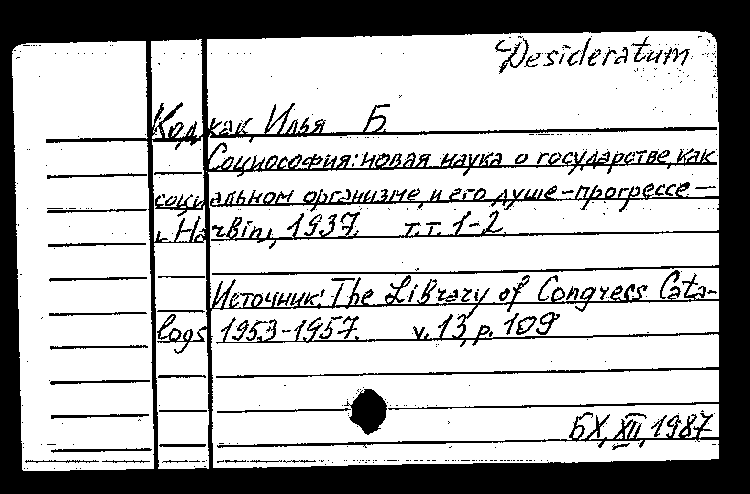 Desideratum
Коджак, Илья Б.
Социософия: новая наука о государстве, как
социальном организме, и его душе-прогрессе.—
Harbin, 1937. т.т. 1-2.
Источник: The Library of Congress Cata-
logs 1953-1957. v. 13, p. 109
БХ, XII, 1987